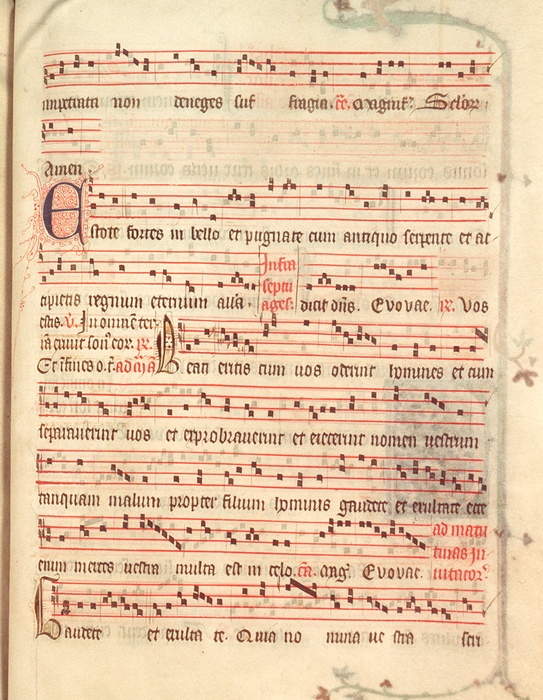 non deneges suf fragia. Seclorum
Amen
Estote fortes in bello et pugnate cum antiquo serpente et ac
cipietis regnum eternum alla. Infra
septu
ages. dicit dns. Evovae. R. Vos
estis. V. In omnem ter
ram exivit son' eor. R.
Et i fines o. t. ad
Beati eritis cum vos oderint homines et cum
separaverint vos et exprobraverint et eiecerint nomen vestrum
tanquam malum propter filium hominis gaudete et exultate ecce
enim merces vestra multa est in celo. Evovae. ad matu
tinas in
vitator'
Gaudete et exulta te. Quia no mina ve stra scri